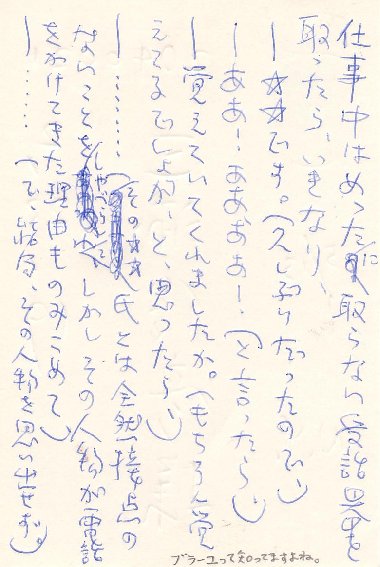 仕事中はめったに取らない受話器を
取ったら、いきなり、
―☆☆です。(久しぶりだったので)
―ああー、ああああー、(と言ったら)
―覚えていてくれましたか。(もちろん覚
えてるでしょが、と、思ったら)
―………(その☆☆氏とは全然接点の
ないことをしゃべられて、しかしその人物が電話
をかけてきた理由ものみこめて)
―……(で、結局、その人物を思い出せず。)
ブラーユって知ってますよね。